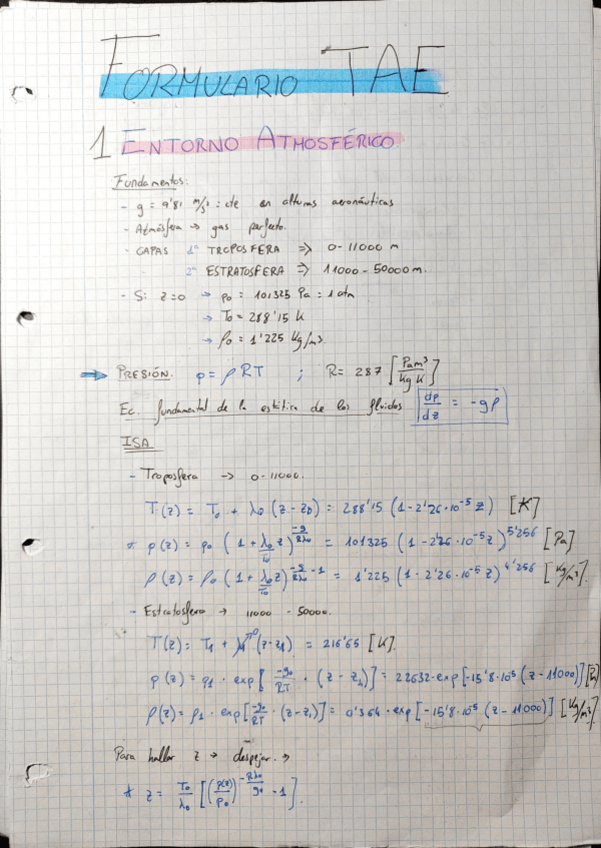 FORMULARIO TAE
1 ENTORNO ATMOSFÉRICO
Fundamentos:
- g = 9'81 m/s² : cte en alturas aeronáuticas
- Atmósfera → gas perfecto.
- CAPAS 1ª TROPOSFERA ⇒ 0-11000 m
2ª ESTRATOSFERA ⇒ 11000 - 50000 m.
- Si z=0 → p₀ = 101325 Pa = 1 atm
→ T₀ = 288'15 K
→ ρ₀ = 1'225 Kg/m³.
→ PRESIÓN. p = ρRT ; R = 287 [Pa m³/Kg K]
Ec. fundamental de la estática de los fluidos dp/dz = -gρ
ISA
- Troposfera → 0-11000.
T(z) = T₀ + λ₀ (z-z₀) = 288'15 (1-2'26·10⁻⁵ z) [K]
* p(z) = p₀ (1 + λ₀/T₀ z)^(-g/Rλ₀) = 101325 (1-2'26·10⁻⁵ z)^5'256 [Pa]
ρ(z) = ρ₀ (1 + λ₀/T₀ z)^(-g/Rλ₀ - 1) = 1'225 (1-2'26·10⁻⁵ z)^4'256 [Kg/m³].
- Estratosfera → 11000 - 50000.
T(z) = T₁ + λ₁ (z-z₁) = 216'65 [K].
p(z) = p₁ · exp[-g₀/RT · (z-z₁)] = 22632·exp[-15'8·10⁵ (z-11000)] [Pa]
ρ(z) = ρ₁ · exp[-g₀/RT · (z-z₁)] = 0'364 · exp[-15'8·10⁵ (z-11000)] [Kg/m³].
Para hallar z → despejar. →
* z = T₀/λ₀ [(p(z)/p₀)^(-Rλ₀/g₀) - 1].